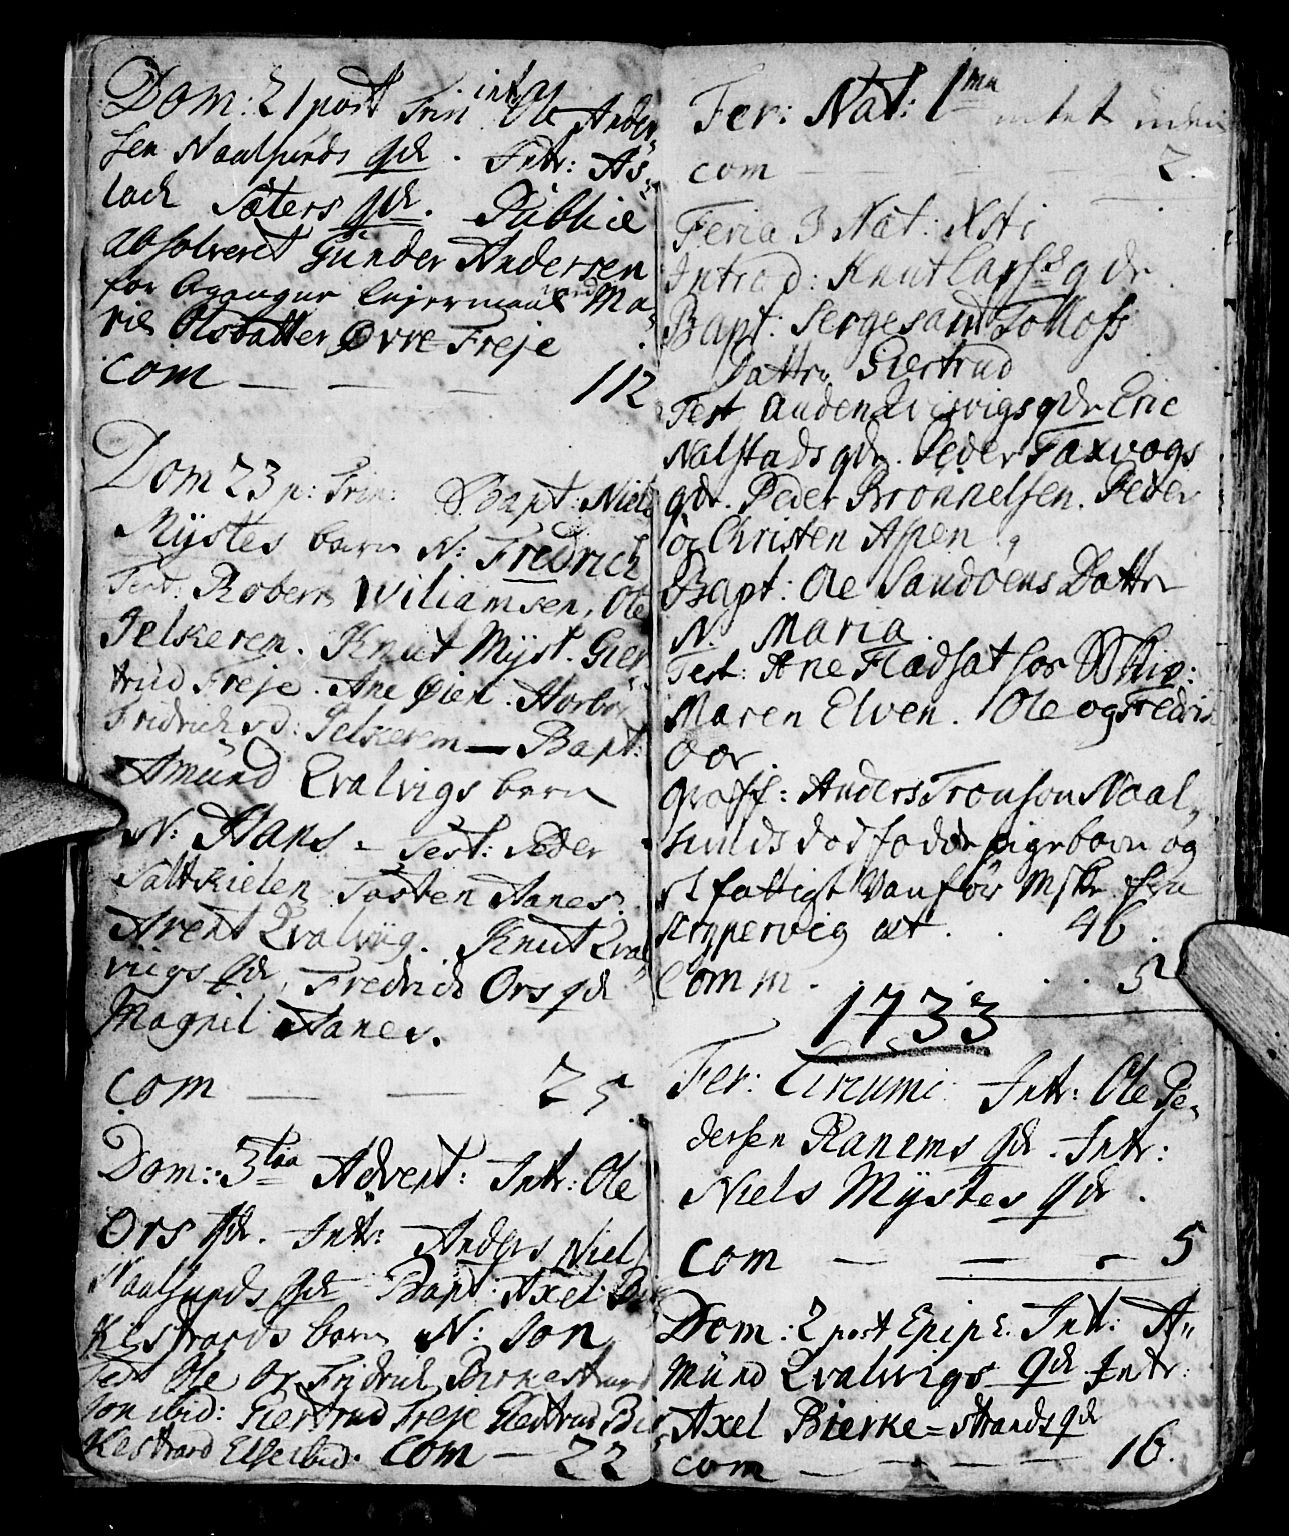 Dom: 21 post Trin Intr Ole Ander
sen Naalsunds qdr. Intr: As=
lach Sæters qdr. Publicé
absolveret Gunder Andersen
for Lejermaal med Ma=
rie Olsdatter Øvre Freje
Com — — — 112
Dom 23 p: Trin: Bapt: Niels
Mystes barn N: Fredrich
Test: Robert Wiliamsen, Ole
Jelkerem. Knut Myst. Gier
trud Freje. Ane Øien.
Fridrichs d: Jelkerem — Bapt:
Amund Qvalvigs barn
N: Hans - Test: Peder
Saltkielen Tosten Aanes.
Arent Qvalvig. Knut Qval
vigs qdr, Fredrich Ors qdr
Magnil Aanes.
Com — — 25
Dom: 3tia Advent: Intr: Ole
Ors qdr. Intr: Anders Niels
Naalsunds qdr Bapt: Axel Bir
kestrands barn N: Jon
Test Ole Or Fridrich Birkestrand
Jon ibid: Giertrud Freje Giertrud Bir
kestrand Else ibid. Com — 22
Fer: Nat: 1ma intet uden
com — — — 2.
Feria 3 Nat: Xsti
Introd: Knut Larss qdr.
Bapt: Sergesand Tollofs
Dattr Giertrud
Test Auden Qvalvigs qdr Eric
Nalstads qdr. Peder Faxvogs
qdr. Peder Bronnelsen. Peder
og Christen Aspen
Bapt: Ole Sandoens Dattr
N. Maria.
Test: Ane Fladsat
Maren Elven. Ole og Fredric
Oer.
Graff: Anders Tronson Naal=
sunds dodfodde pigebarn og
et fattigt Vanfør Mske fra
Krypervig æt . . 46.
Comm. . . . . 5
1733
Fer: Circumc: Intr: Ole Pe=
dersen Ranems qdr. Intr:
Niels Mystes qdr.
Com — — - 5
Dom: 2 post Epiph. Intr: A=
mund Qvalvigs qdr Intr:
Axel Bierke=strands qdr
com — — — 16.